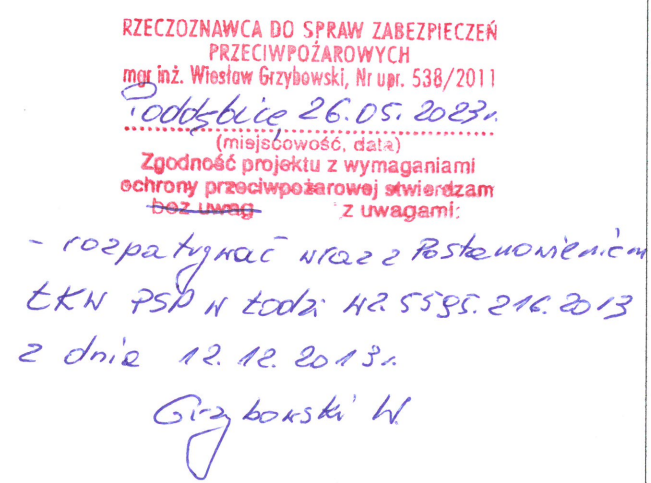 RZECZOZNAWCA DO SPRAW ZABEZPIECZEŃ
PRZECIWPOŻAROWYCH
mgr inż. Wiesław Grzybowski, Nr upr. 538/2011
Poddębice 26.05.2023r.
(miejscowość, data)
Zgodność projektu z wymaganiami
ochrony przeciwpożarowej stwierdzam
bez uwag z uwagami:
- rozpatrywać wraz z Postanowieniem
ŁKW PSP w Łodzi WZ.5595.216.2013
z dnia 12.12.2013r.
Grzybowski W